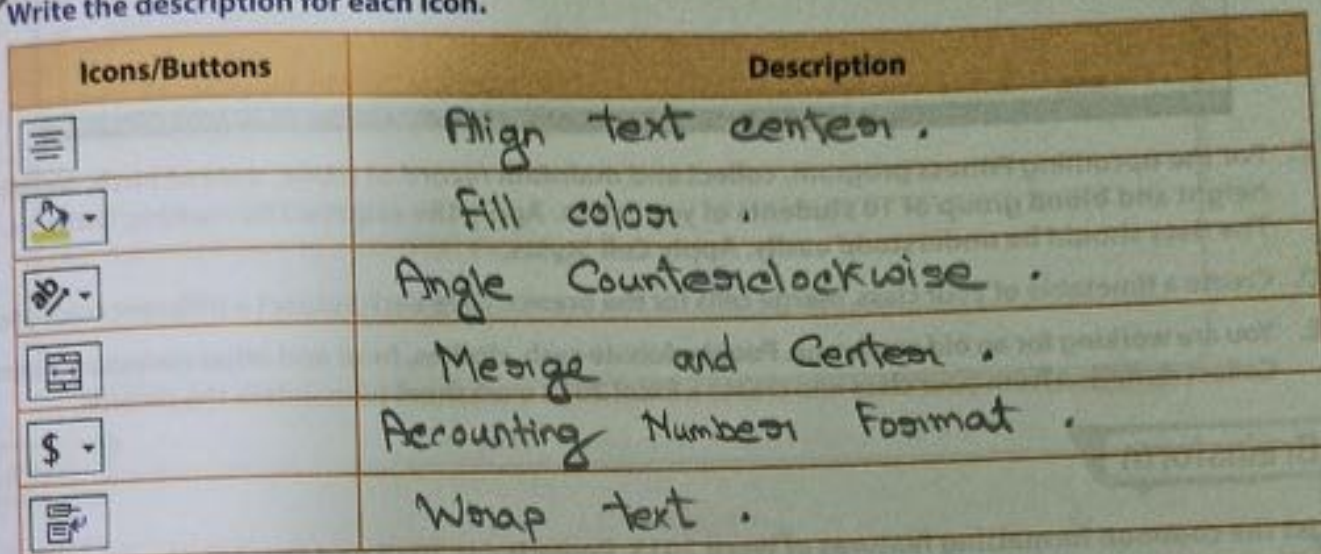 Write the description for each icon.
Icons/Buttons Description
Align text center.
Fill color.
ab Angle Counterclockwise.
Merge and Center.
$ Accounting Number Format.
Wrap text.